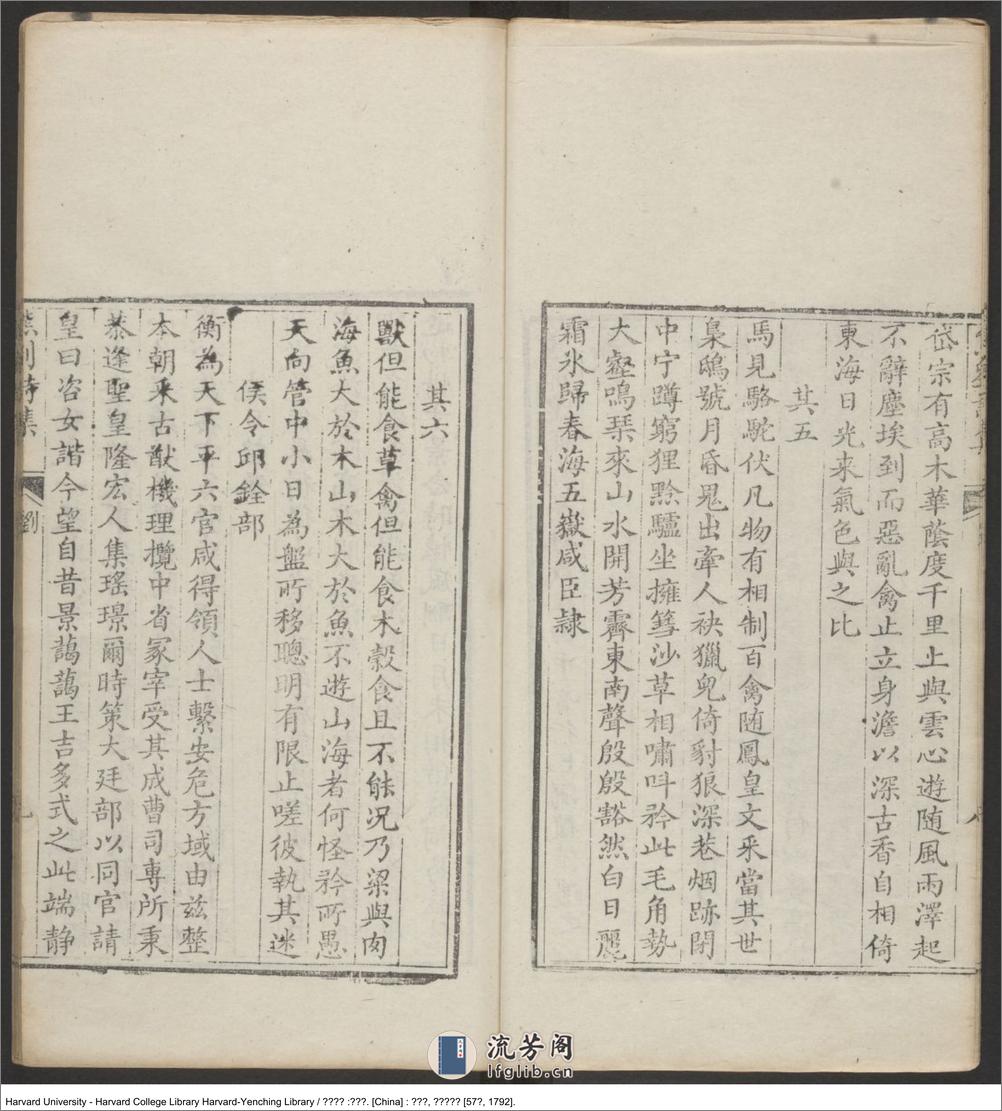 岱宗有高木華蔭度千里止與雲心遊随風雨澤起
不辭塵埃到而惡亂禽止立身澹以深古香自相倚
東海日光来氣色與之比
其五
馬見駱駝伏凡物有相制百禽随鳳皇文采當其世
梟鴟號月昏鬼出牽人袂獵兕倚豺狼深巷烟跡閉
中宁蹲窮狸黔驢坐擁篲沙草相嘯呌矜此毛角勢
大壑鳴琹來山水開芳霽東南聲殷殷豁然白日麗
霜氷歸春海五嶽咸臣隷
其六
獸但能食草禽但能食木穀食且不能况乃粱與肉
海魚大於木山木大於魚不遊山海者何怪矜所愚
天向管中小日為盤所移聰明有限止嗟彼執其迷
侯令邱銓部
衡為天下平六官咸得領人士繫安危方域由兹整
本朝采古猷機理攬中省冢宰受其成曹司專所秉
恭逢聖皇隆宏人集瑤璟爾時策大廷部以同官請
皇曰咨女諧今望自昔景藹藹王吉多式之此端静
詩集
劉
九
流芳阁
lfglib.cn
Harvard University - Harvard College Library Harvard-Yenching Library / ???? :???. [China] : ???, ????? [57?, 1792].